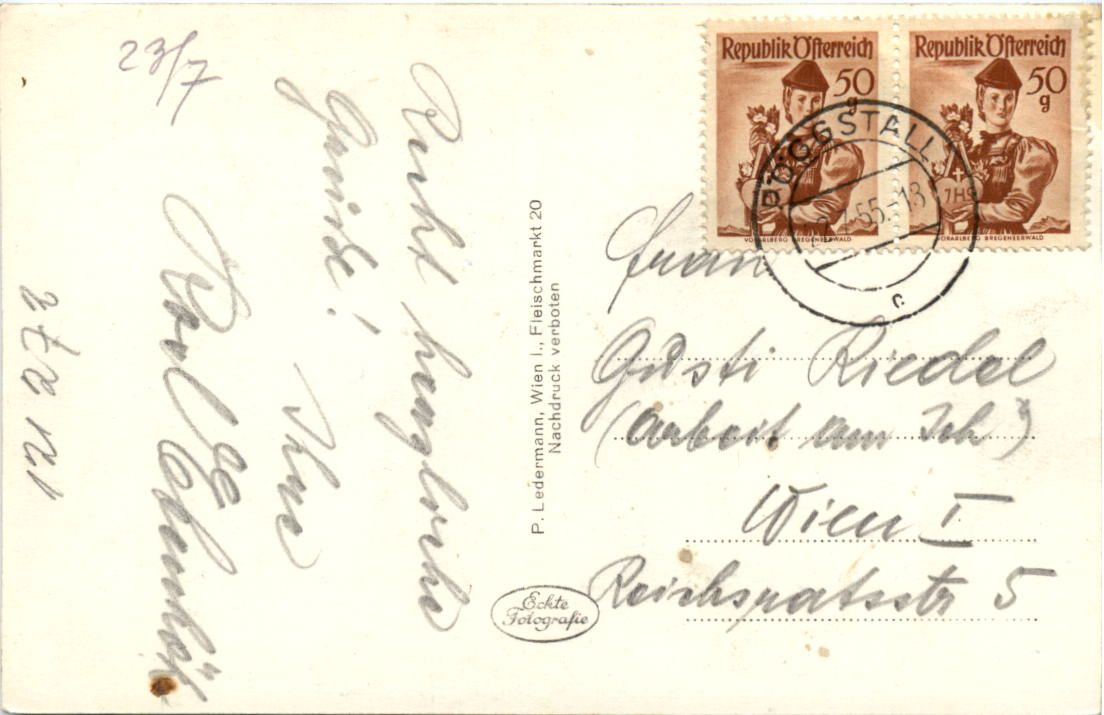 23/7
Recht herzliche
Grüße!
Ihre
P. Ledermann, Wien I., Fleischmarkt 20
Nachdruck verboten
Echte
Fotografie
Republik Österreich
50
g
VORARLBERG BREGENZERWALD
Republik Österreich
50
g
VORARLBERG BREGENZERWALD
PÖGGSTALL
55-18
c
Frau
Gusti Riedel
(Arbeit am Ich")
Wien I
Reichsratsstr 5